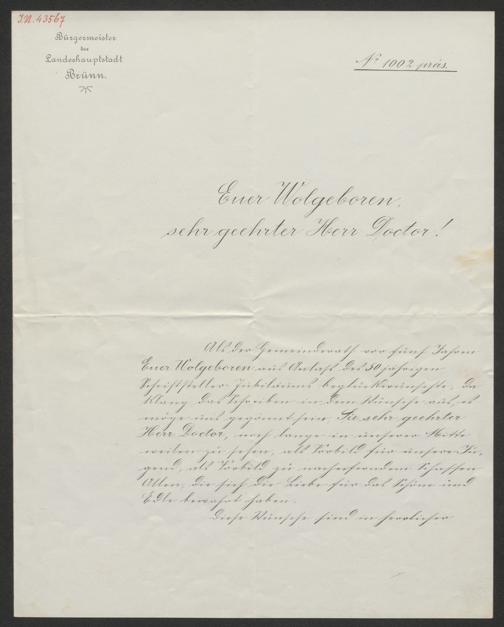 I.N. 43567
Bürgermeister
der
Landeshauptstadt
Brünn.
Nº 1002 präs.
Euer Wolgeboren,
sehr geehrter Herr Doctor!
Als der Gemeinderath vor fünf Jahren
Euer Wolgeboren aus Anlass des 50jährigen
Schriftsteller-Jubiläums beglückwünschte, da
klang das Schreiben in dem Wunsche aus, es
möge uns gegönnt sein, Sie, sehr geehrter
Herr Doctor, noch lange in unserer Mitte
weilen zu sehen, als Vorbild für unsere Ju-
gend, als Vorbild zu nacheiferndem Schaffen
Allen, die sich die Liebe für das Schöne und
Edle bewahrt haben.
Diese Wünsche sind in herrlicher